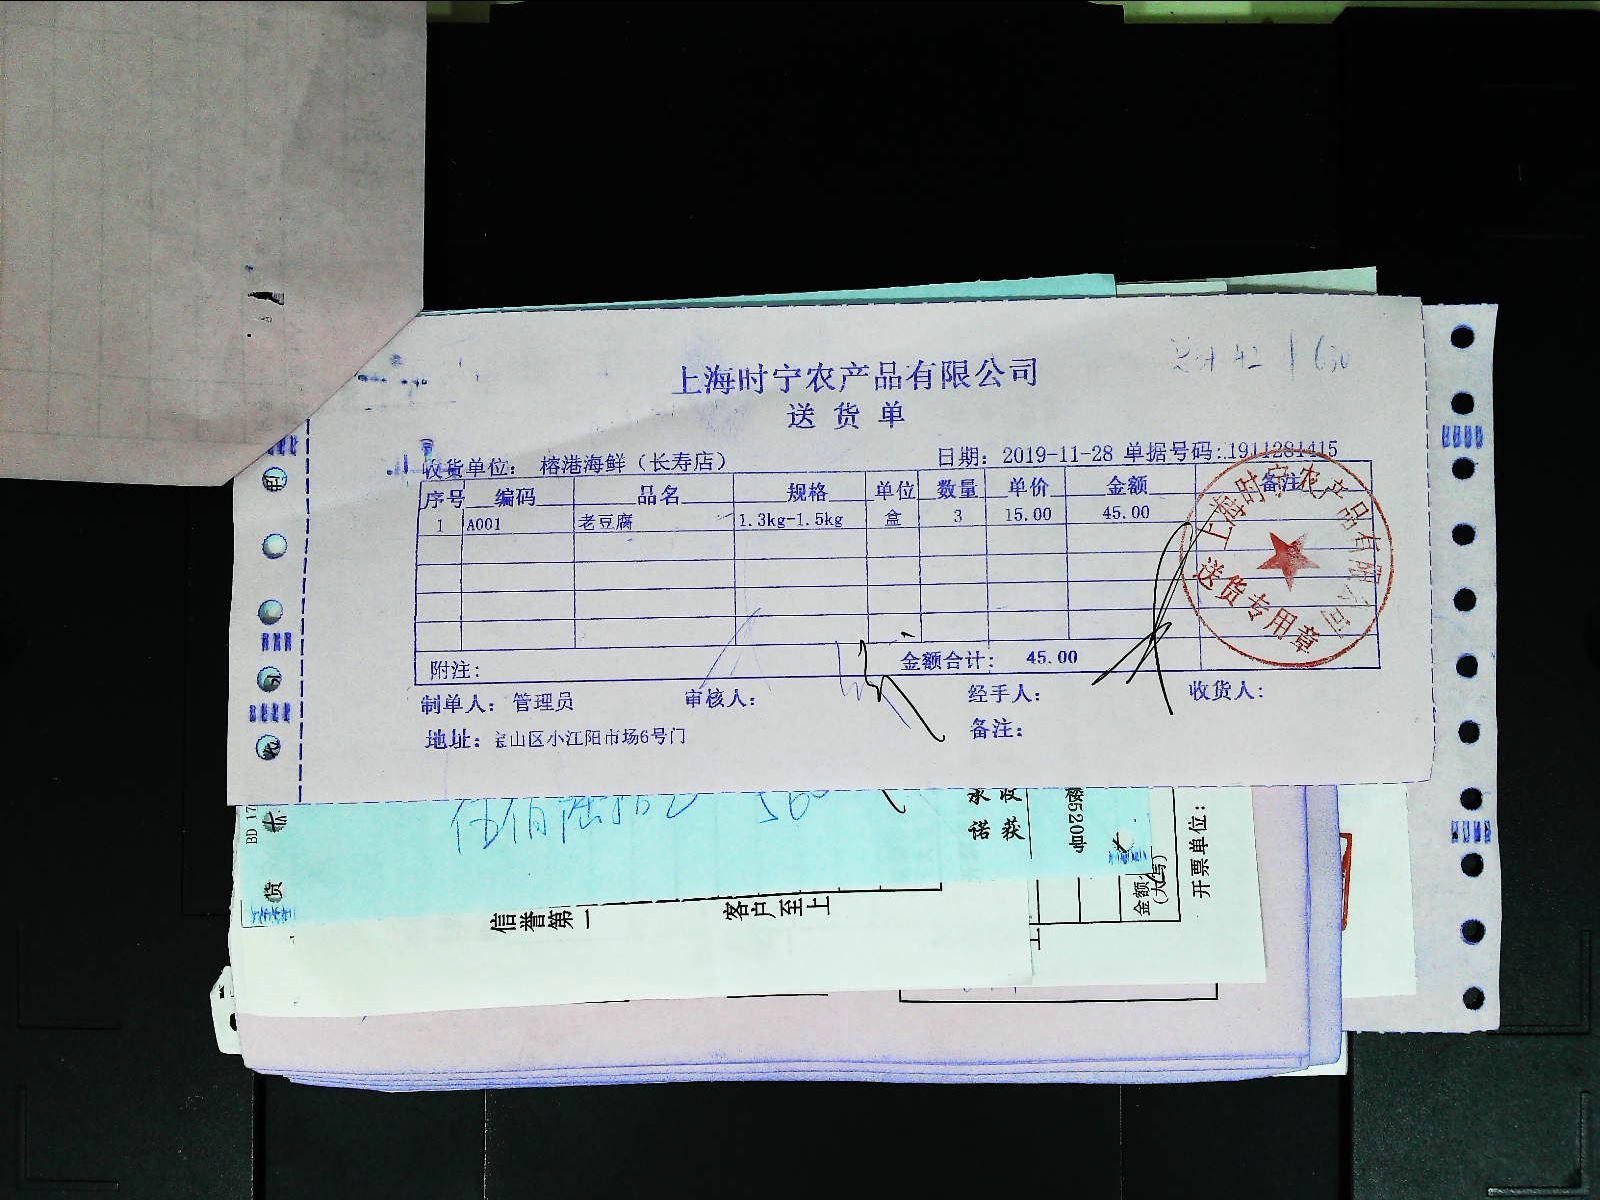 上海时宁农产品有限公司
送货单
收货单位: 榕港海鲜（长寿店） 日期: 2019-11-28 单据号码: 1911281415
序号 编码 品名 规格 单位 数量 单价 金额 备注
1 A001 老豆腐 1.3kg-1.5kg 盒 3 15.00 45.00
附注: 金额合计: 45.00
制单人: 管理员 审核人: 经手人: 收货人:
地址: 宝山区小江阳市场6号门 备注:
上海时宁农产品有限公司
送货专用章
560
承诺
收获
楼520㎡
金额
(大写)
开票单位:
BD 17
货
信誉第一
客户至上